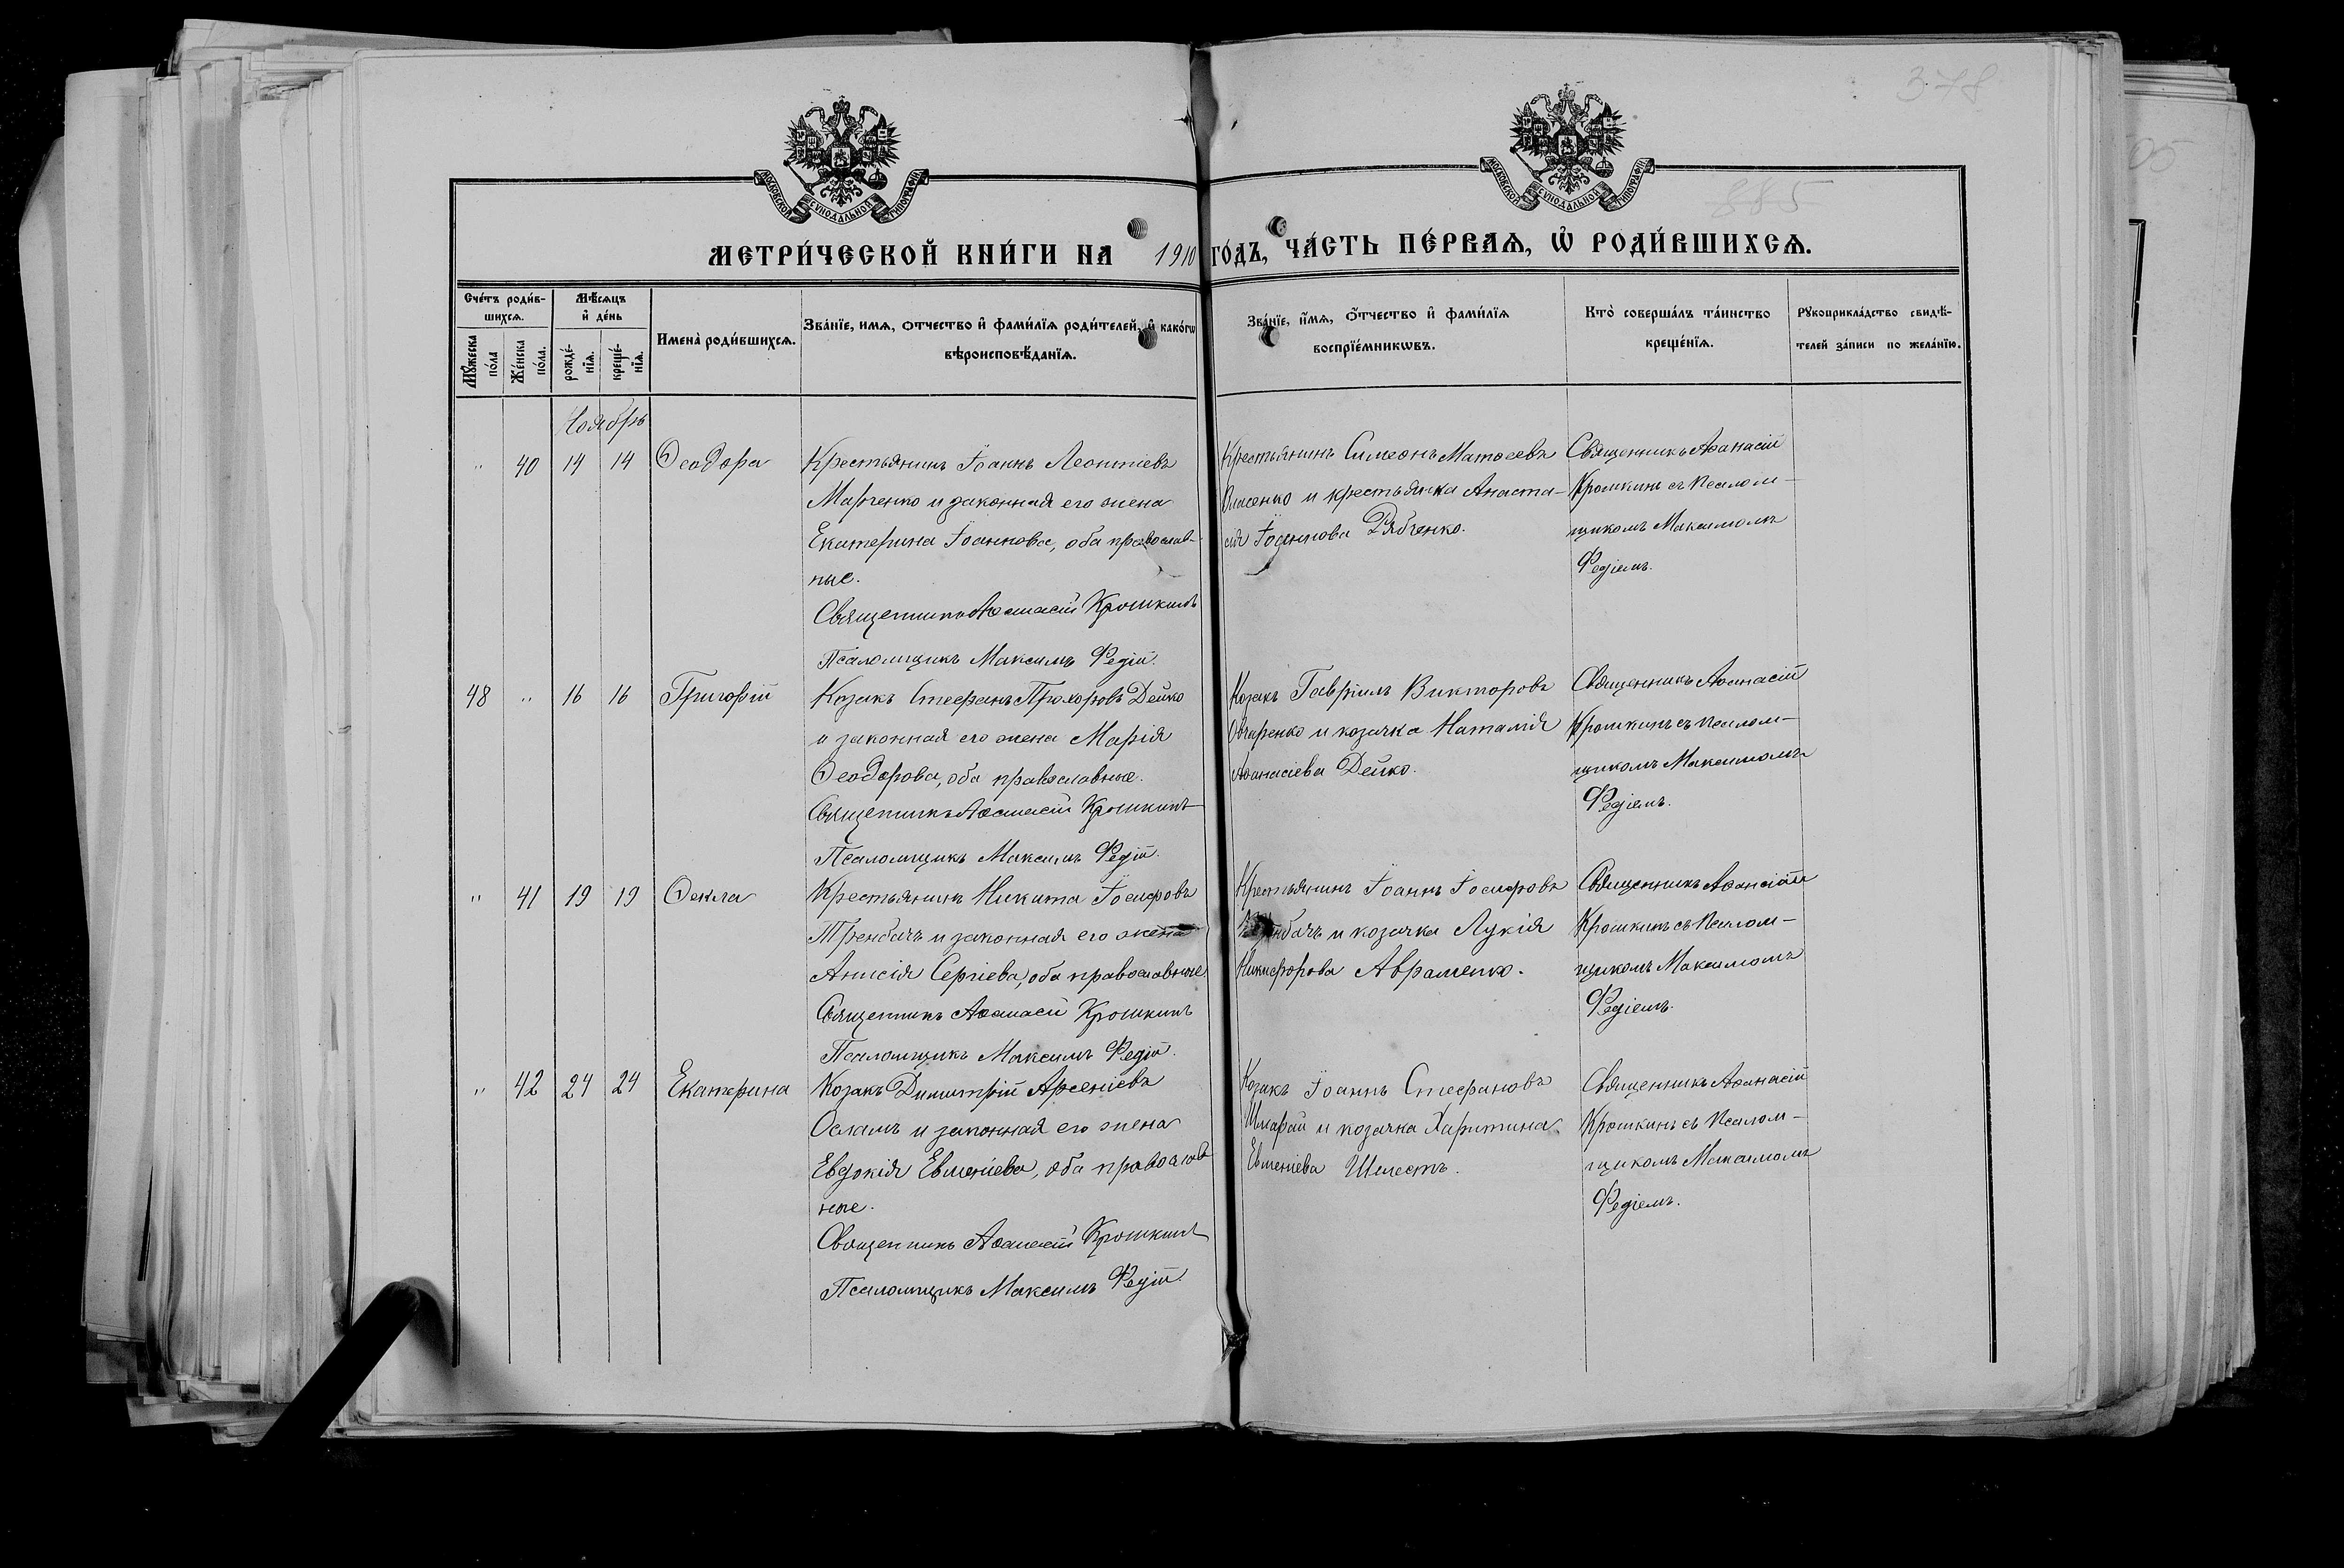 378
885
05
МОСКОВСКОЙ СУНОДАЛЬНОЙ ТИПОГРАФІИ
МОСКОВСКОЙ СУНОДАЛЬНОЙ ТИПОГРАФІИ
МЕТРИ́ЧЕСКОЙ КНИ́ГИ НА 1910 ГО́ДЪ, ЧА́СТЬ ПЕ́РВАѦ, Ѡ҆ РОДИ́ВШИХСѦ.
Сче́тъ роди́в-
шихсѧ.
Мꙋ́жеска по́ла
Же́нска по́ла.
Мѣ́сѧцъ
и҆ де́нь
рожде́-
нїѧ.
креще́-
нїѧ.
Имена̀ роди́вшихсѧ.
Зва́нїе, имѧ, ѻтчество и҆ фами́лїѧ роди́телей, и҆ како́гѡ
вѣроисповѣ́данїѧ.
Зва́нїе, и҆́мѧ, ѻ҆́тчество и҆ фами́лїѧ
воспрїе́мникѡвъ.
Кто̀ соверша́лъ та́инство
креще́нїѧ.
Рꙋкоприкла́дство свидѣ́-
телей за́писи по жела́нїю.
Ноябрь
" 40 14 14 Ѳеодора
Крестьянинъ Іоаннъ Леонтіевъ
Марченко и законная его жена
Екатерина Іоаннова, оба православ-
ные.
Священникъ Аѳанасій Крошкинъ
Псаломщикъ Максимъ Федій.
Крестьянинъ Симеонъ Матѳеевъ
Власенко и крестьянка Анаста-
сія Іоаннова Рябченко.
Священникъ Аѳанасій
Крошкинъ съ псалом-
щикомъ Максимомъ
Федіемъ.
48 " 16 16 Григорій
Козакъ Стефанъ Прохоровъ Дейко
и законная его жена Марія
Ѳеодорова, оба православные.
Священникъ Аѳанасій Крошкинъ
Псаломщикъ Максимъ Федій.
Козакъ Гавріилъ Викторовъ
Овчаренко и козачка Наталія
Аѳанасіева Дейко.
Священникъ Аѳанасій
Крошкинъ съ псалом-
щикомъ Максимомъ
Федіемъ.
" 41 19 19 Ѳекла
Крестьянинъ Никита Іосифовъ
Тренбачъ и законная его жена
Анисія Сергіева, оба православные
Священникъ Аѳанасій Крошкинъ
Псаломщикъ Максимъ Федій.
Крестьянинъ Іоаннъ Іосифовъ
и козачка Лукія
Никифорова Авраменко.
Священникъ Аѳанасій
Крошкинъ съ псалом-
щикомъ Максимомъ
Федіемъ.
" 42 24 24 Екатерина
Козакъ Димитрій Арсеніевъ
Осламъ и законная его жена
Евдокія Евменіева, оба православ
ные.
Священникъ Аѳанасій Крошкинъ
Псаломщикъ Максимъ Федій.
Козакъ Іоаннъ Стефановъ
Шкарай и козачка Харитина
Евменіева Шелестъ.
Священникъ Аѳанасій
Крошкинъ съ псалом-
щикомъ Максимомъ
Федіемъ.